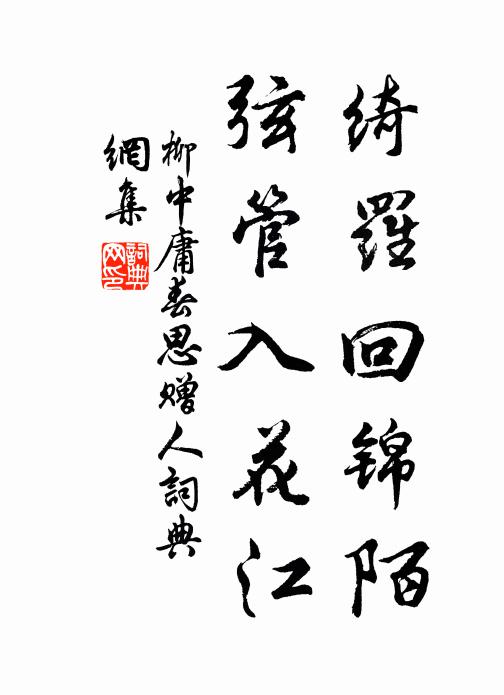 绮羅回锦陌
弦管入花江
柳中庸春思赠人詞典
網集
詞典
网印